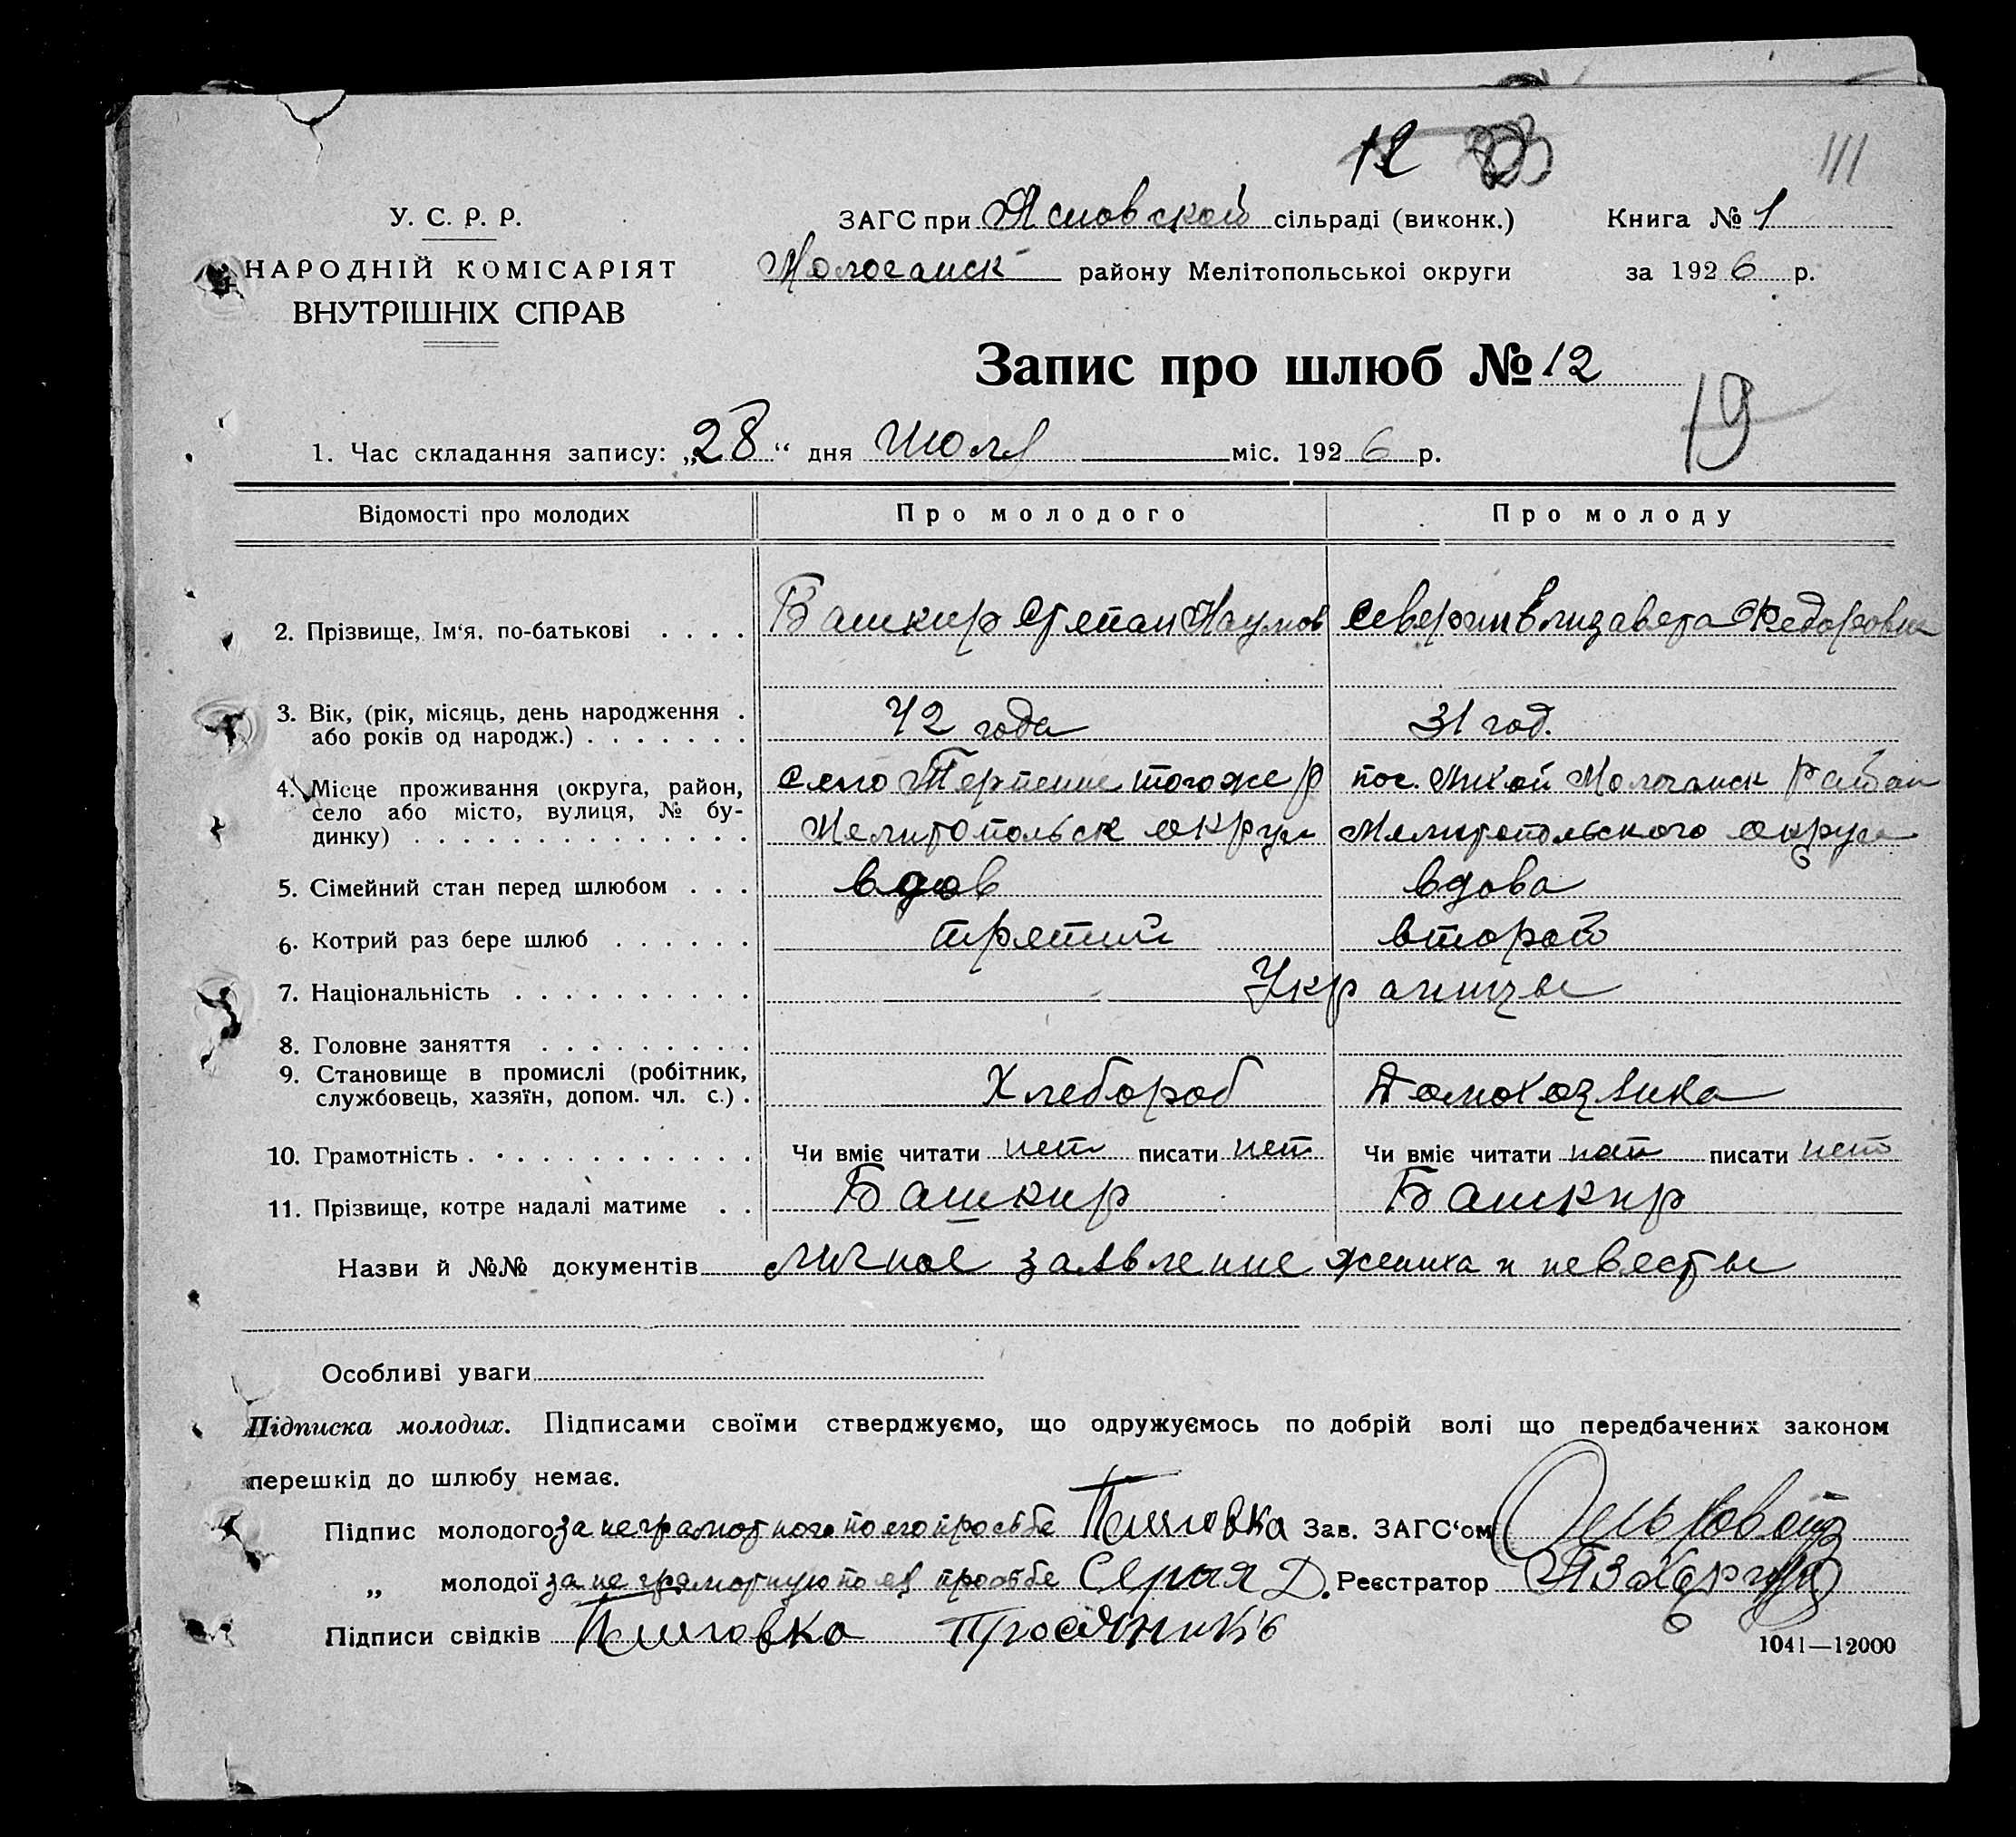 12
111
У. С. Р. Р.
НАРОДНІЙ КОМІСАРІЯТ
ВНУТРІШНІХ СПРАВ
ЗАГС при Ясновской сільраді (виконк.)
Молочанск району Мелітопольської округи
Книга № 1
за 1926 р.
Запис про шлюб № 12
19
1. Час складання запису: „28“ дня Июля міс. 1926 р.
Відомості про молодих Про молодого Про молоду
2. Прізвище, Ім‘я, по-батькові . . . . Башкир Степан Наумов Северин Елизавета Федоровна
3. Вік, (рік, місяць, день народження .
або років од народж.) . . . . . . . 42 года 31 год.
4. Місце проживання (округа, район, село Терпение тогоже р пос. Молочанск Район
село або місто, вулиця, № бу- Мелитопольск округи Мелитопольского округа
динку) . . . . . . . . . . . . . .
5. Сімейний стан перед шлюбом . . . вдов вдова
6. Котрий раз бере шлюб . . . . . . третий второй
7. Національність . . . . . . . . . . Украинцы
8. Головне заняття . . . . . . . . .
9. Становище в промислі (робітник,
службовець, хазяїн, допом. чл. с.) . Хлебороб Домохозяика
10. Грамотність . . . . . . . . . . . . Чи вміє читати нет писати нет Чи вміє читати нет писати нет
11. Прізвище, котре надалі матиме . . Башкир Башкир
Назви й №№ документів личное заявление жениха и невесты
Особливі уваги
Підписка молодих. Підписами своїми стверджуємо, що одружуємось по добрій волі що передбачених законом
перешкід до шлюбу немає.
Підпис молодого за неграмотного по его просьбе Зав. ЗАГС‘ом
„ молодої за не грамотную по ея просьбе Серая Д. Реєстратор
Підписи свідків
1041—12000